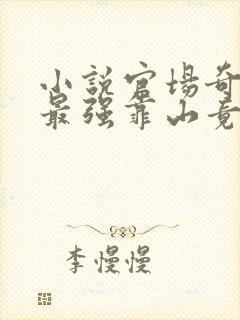 小説官場奇
最强靠山竟
李慢慢